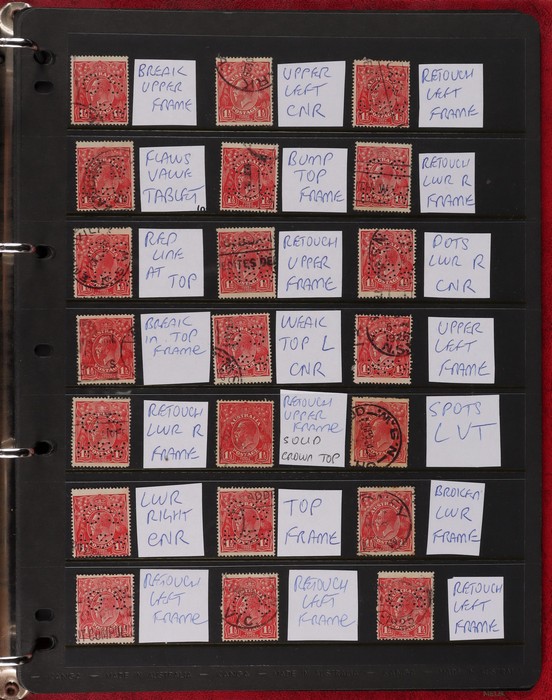 BREAK
UPPER
FRAME
UPPER
LEFT
CNR
RETOUCH
LEFT
FRAME
FLAWS
VALUE
TABLET
BUMP
TOP
FRAME
RETOUCH
LWR R
FRAME
RED
LINE
AT
TOP
RETOUCH
UPPER
FRAME
DOTS
LWR R
CNR
BREAK
IN TOP
FRAME
WEAK
TOP L
CNR
UPPER
LEFT
FRAME
RETOUCH
LWR R
FRAME
RETOUCH
UPPER
FRAME
SOLID
CROWN TOP
SPOTS
LVT
LWR
RIGHT
CNR
TOP
FRAME
BROKEN
LWR
FRAME
RETOUCH
LEFT
FRAME
RETOUCH
LEFT
FRAME
RETOUCH
LEFT
FRAME